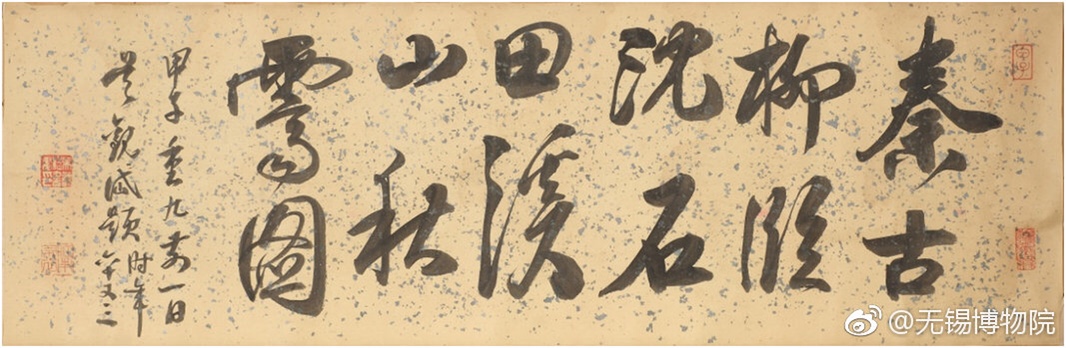 秦古
柳臨
沈石
田溪
山秋
霽圖
甲子重九前一日
吴觀岱題时年
六十又三
@无锡博物院